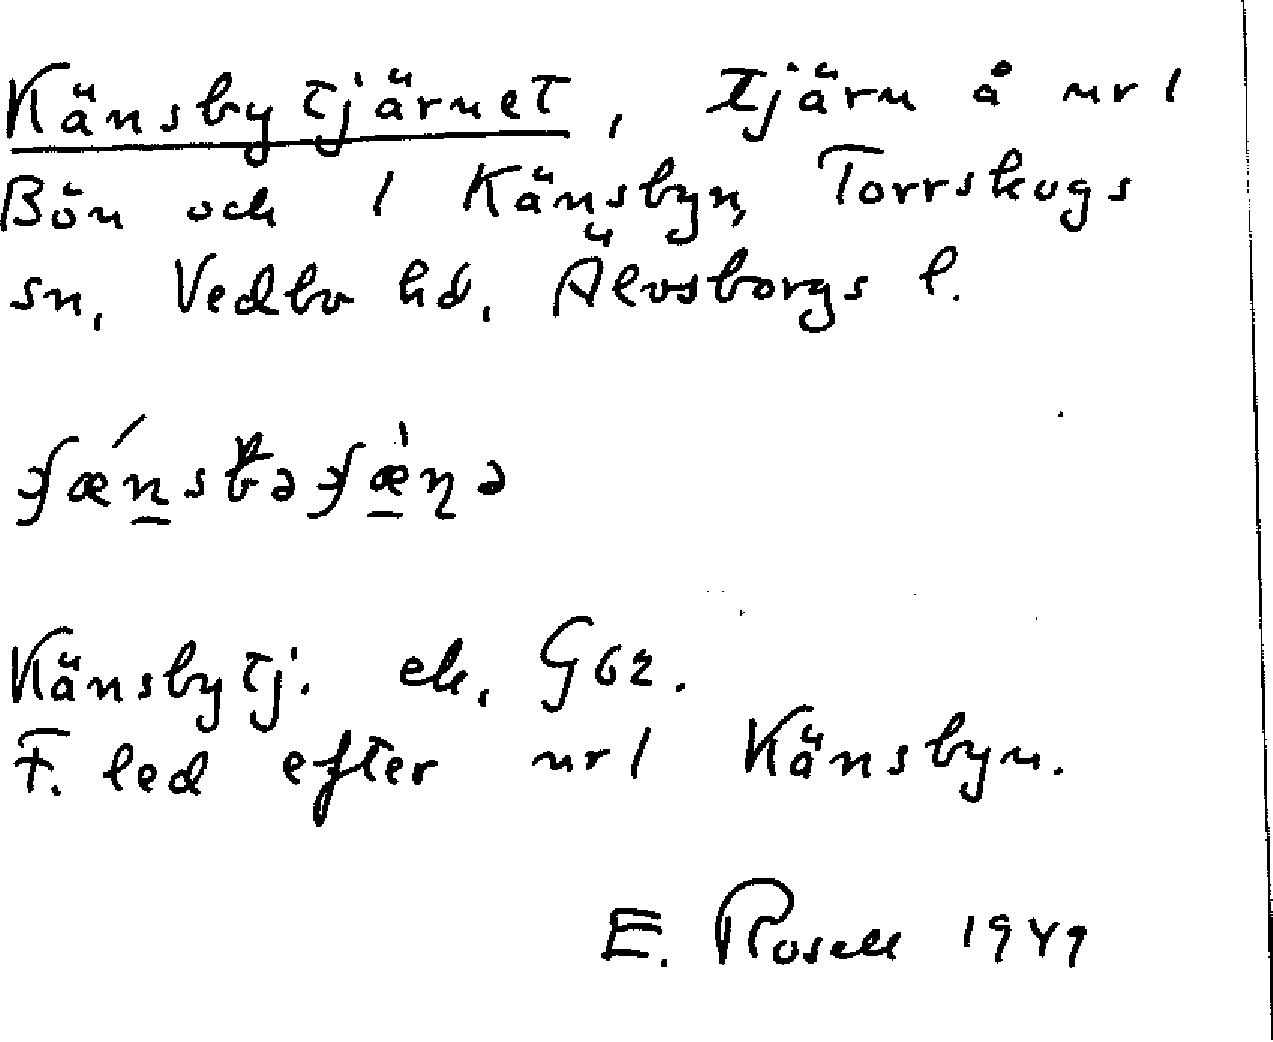 Känsbytjärnet, tjärn å nr 1
Bön och 1 Känsbyn, Torrskogs
sn, Vedbo hd, Älvsborgs l.
Känsbytj. ek. G62.
F. led efter nr 1 Känsbyn.
E. Rosell 1949